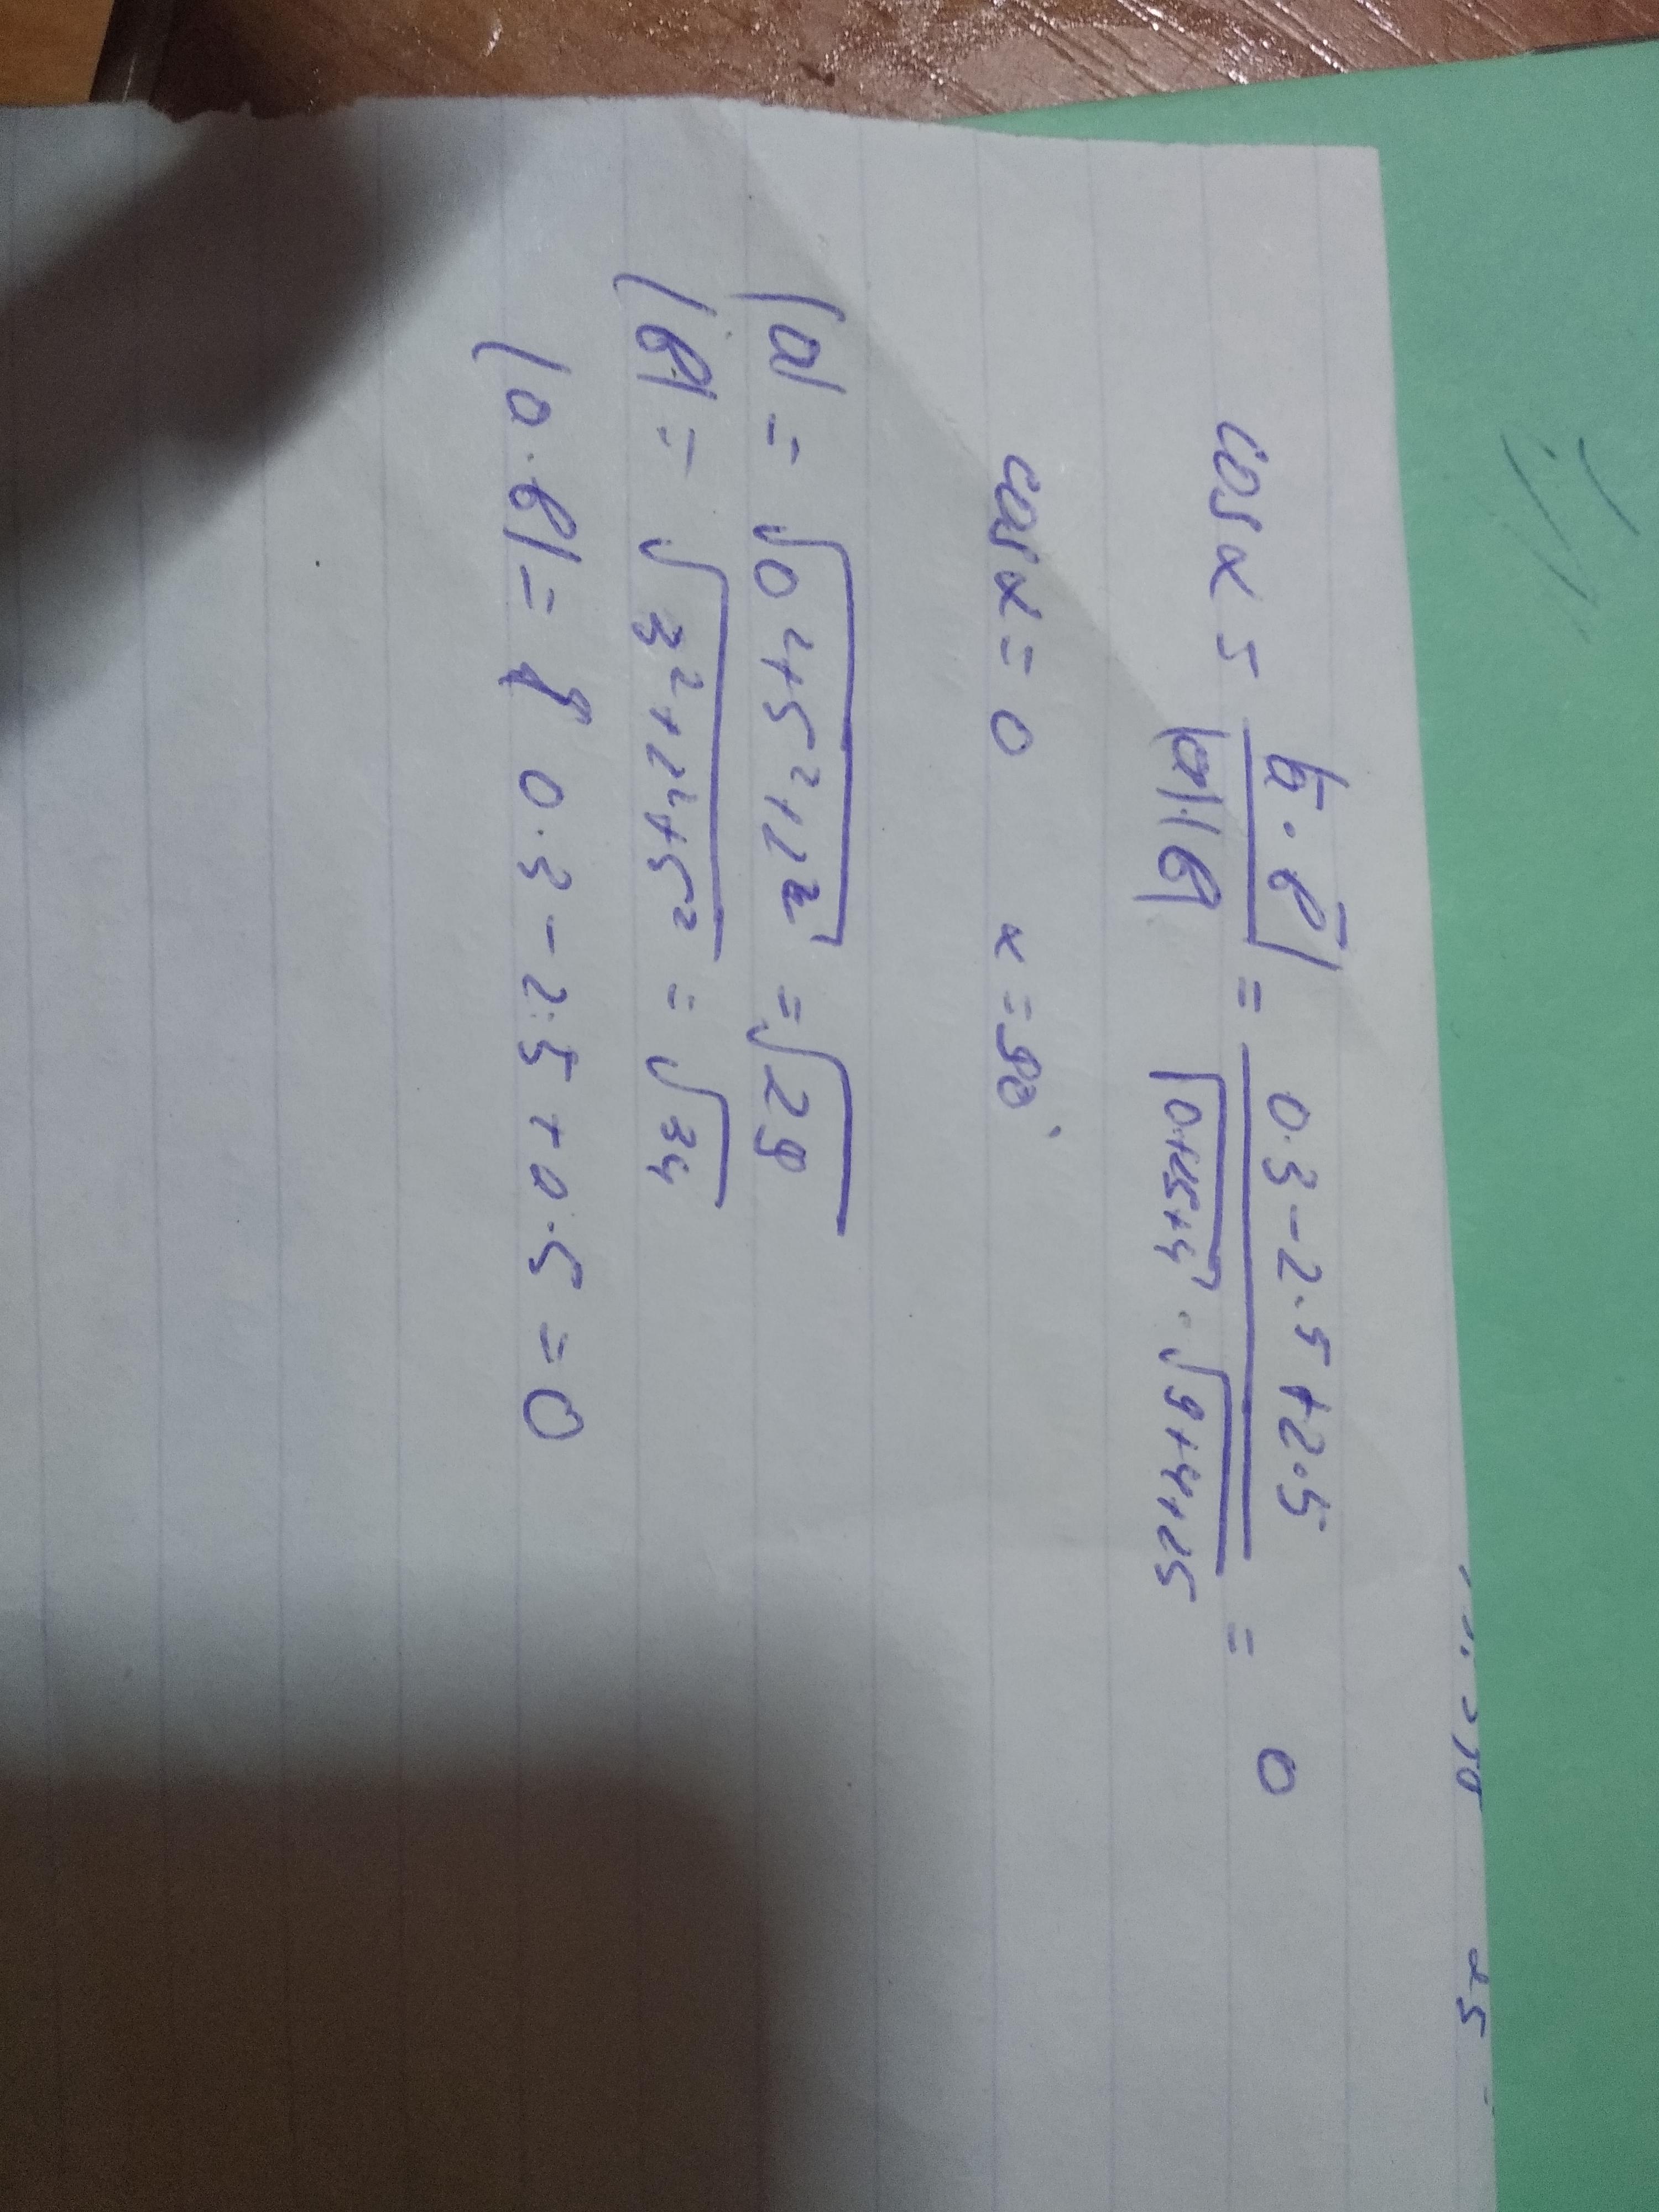 cos α = a̅ · b̅ / |a|·|b| = 0·3 - 2·5 + 2·5 / √0+25+4 · √9+4+25 = 0
cos α = 0 α = 90°
|a| = √0²+5²+2² = √29
|b| = √3²+2²+5² = √34
|a·b| = 0·3 - 2·5 + 0·5 = 0